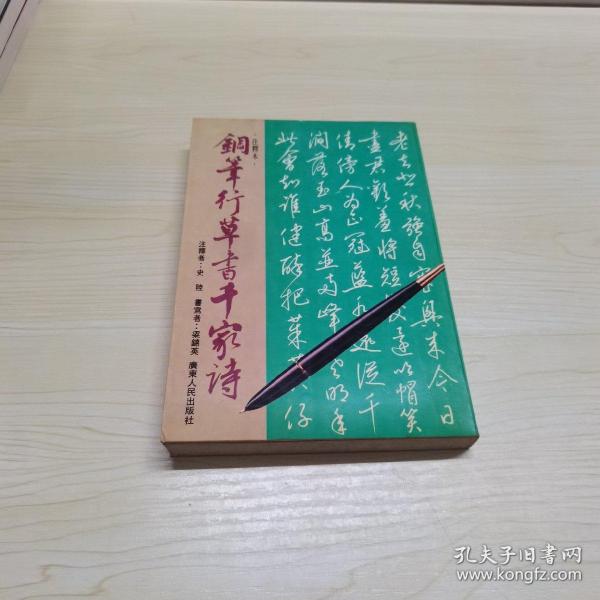 ·注釋本·
鋼筆行草書千家詩
注釋者：史 陸 書寫者：梁錦英 廣東人民出版社
老去悲秋強自寬興來今日
盡君歡羞將短发還吹帽笑
倩傍人為正冠藍水遠從千
澗落玉山高並兩峰寒明年
此會知誰健醉把茱萸仔
孔夫子旧书网
www.kongfz.com